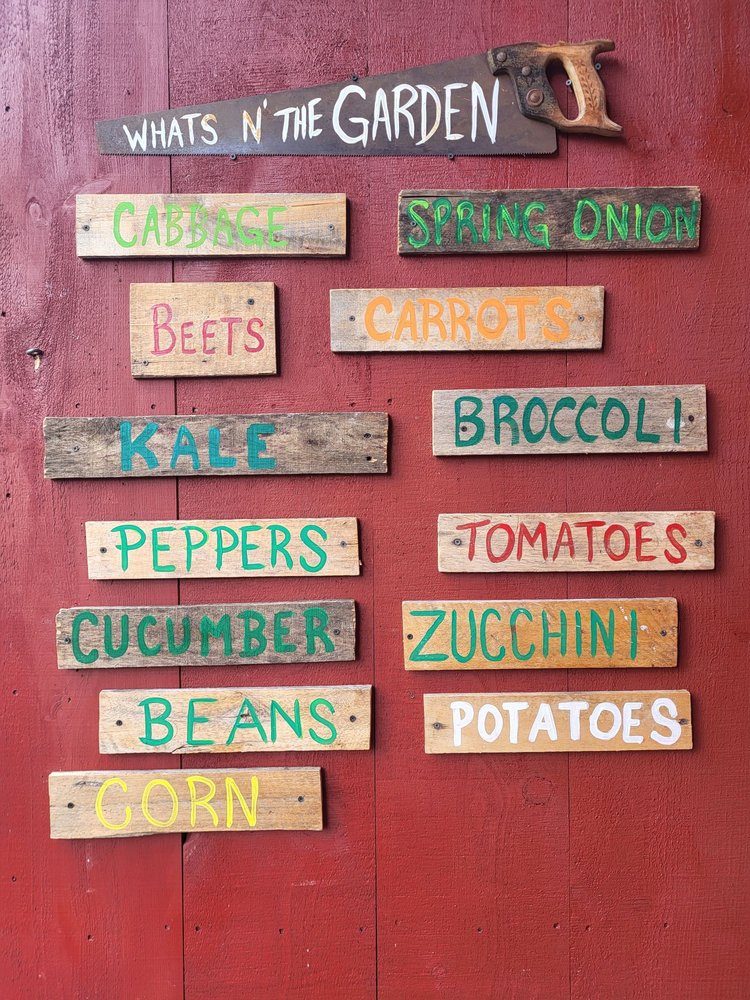 WHATS N' THE GARDEN
CABBAGE
SPRING ONION
BEETS
CARROTS
KALE
BROCCOLI
PEPPERS
TOMATOES
CUCUMBER
ZUCCHINI
BEANS
POTATOES
CORN